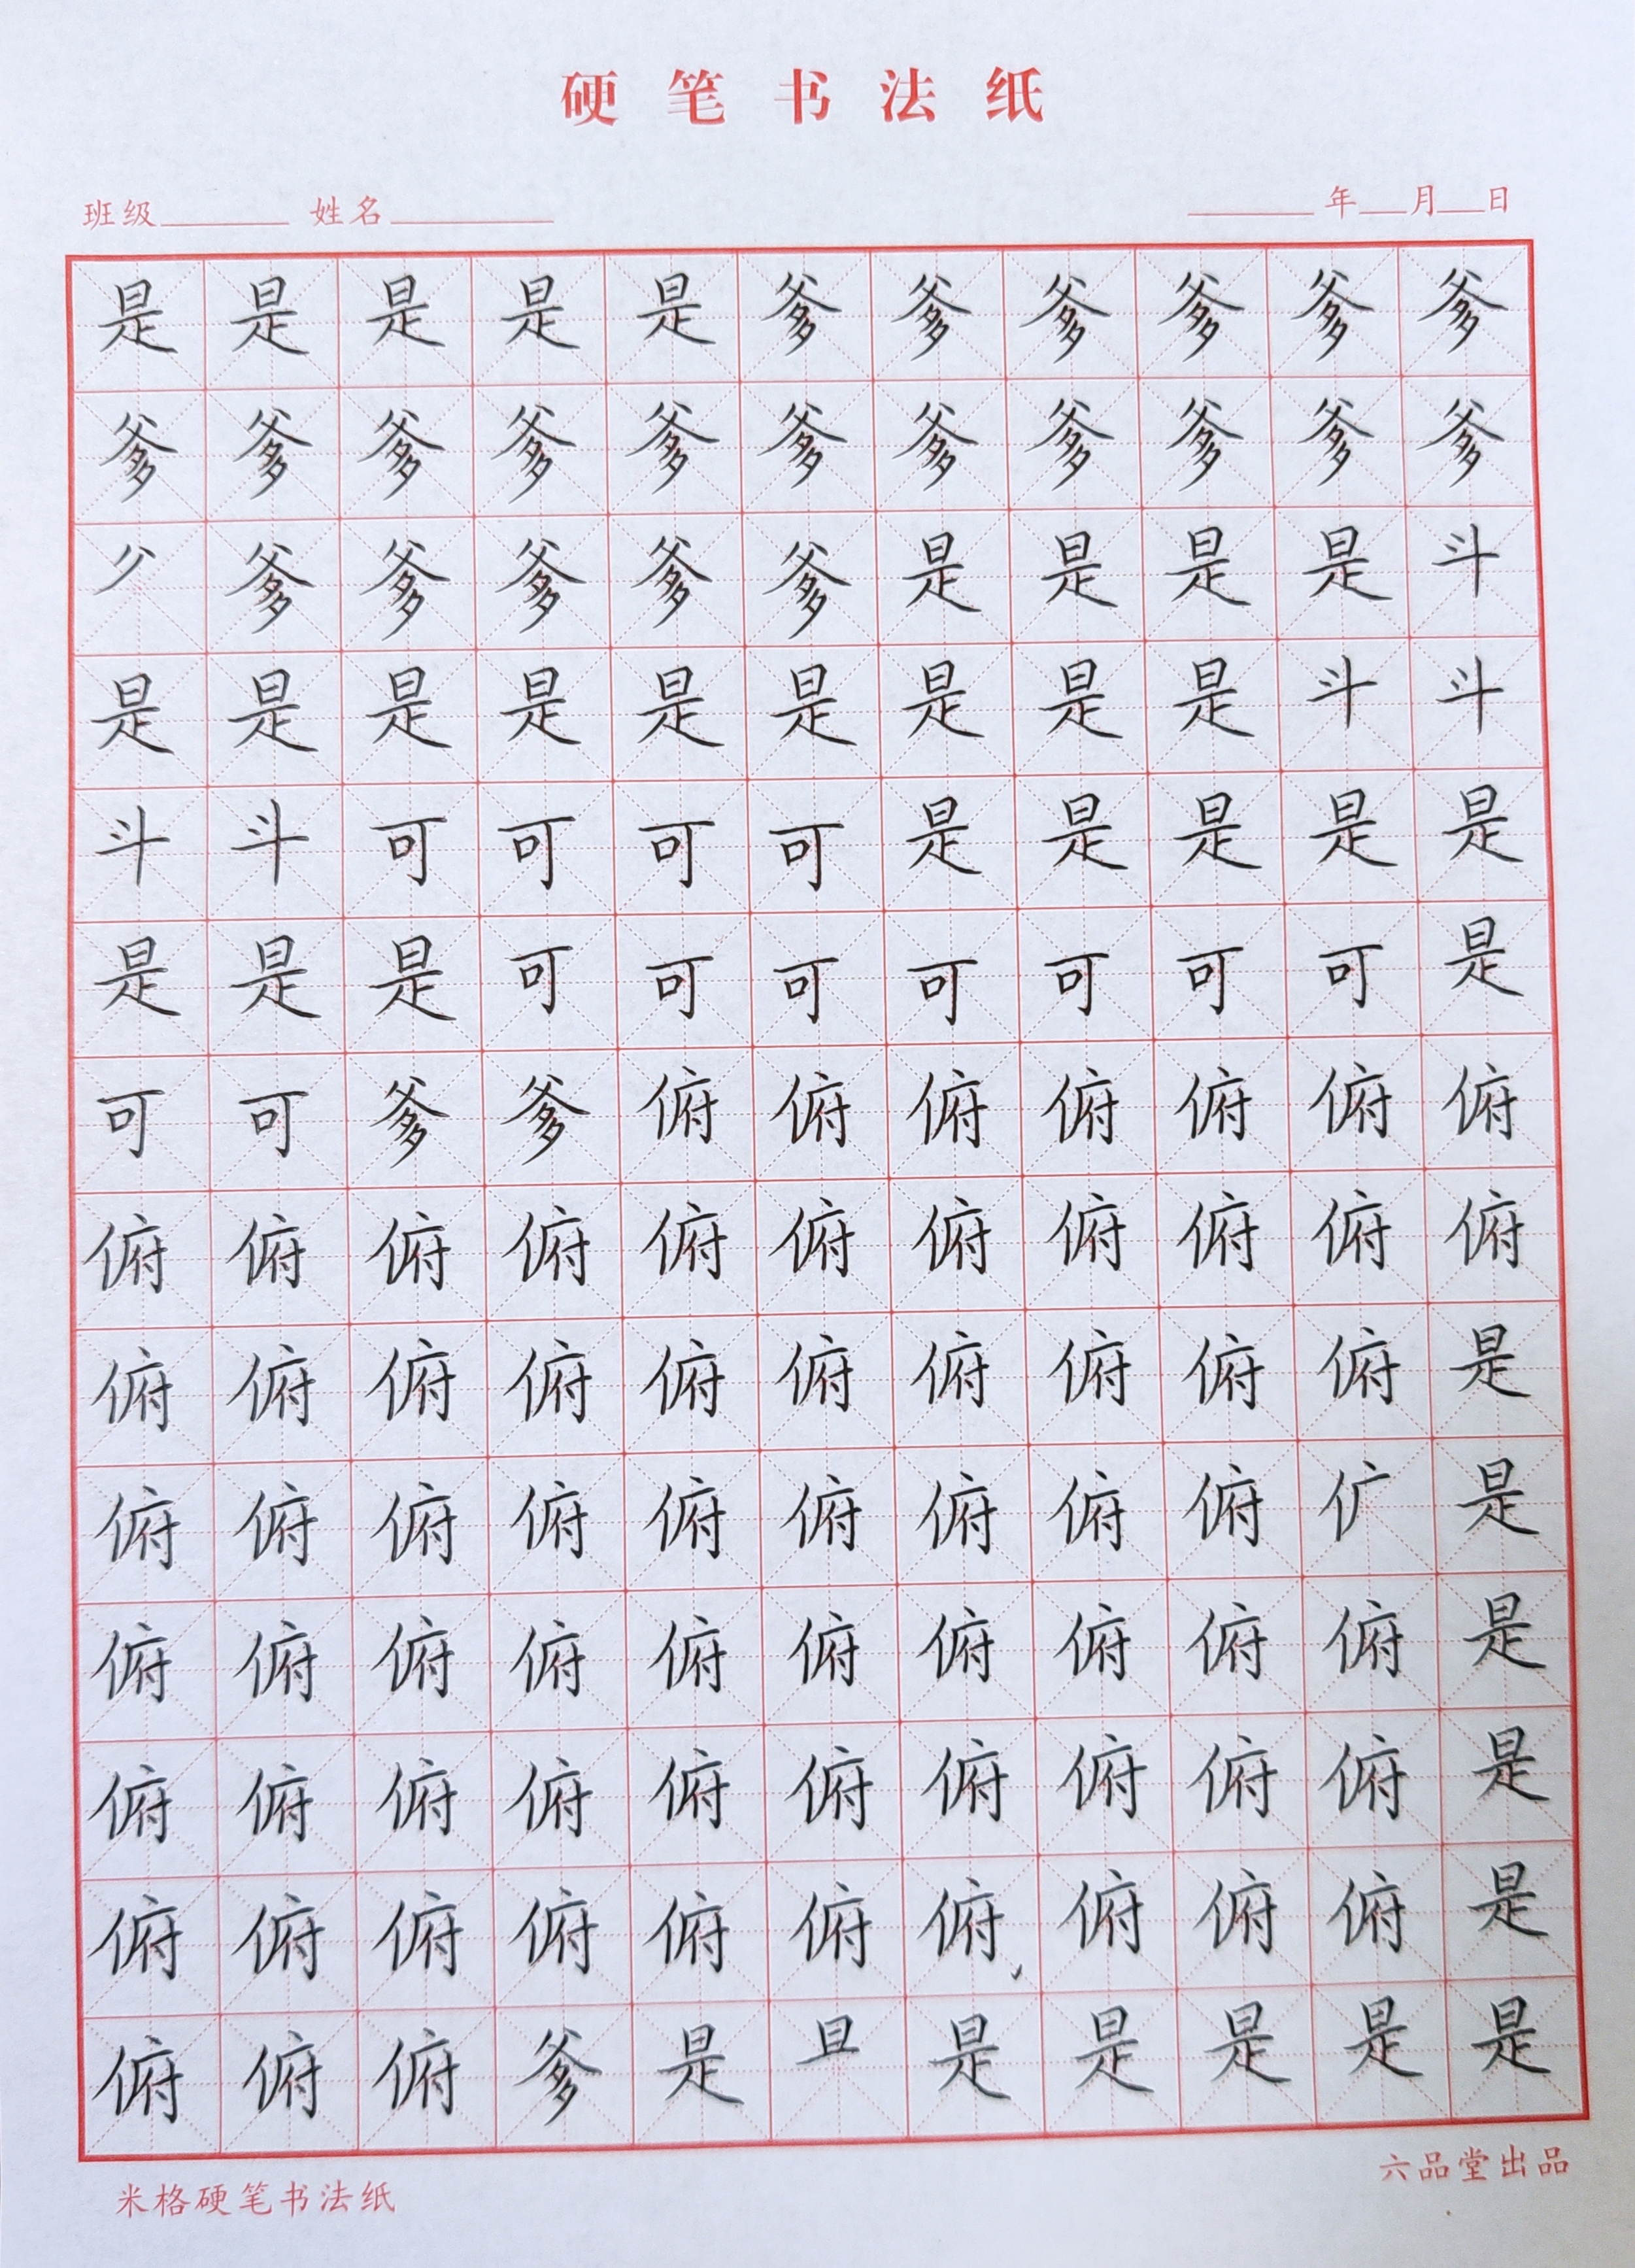 硬笔书法纸
班级 姓名 年 月 日
是是是是是爹爹爹爹爹爹
爹爹爹爹爹爹爹爹爹爹爹
爹爹爹爹爹是是是是斗
是是是是是是是是是斗斗
斗斗可可可可是是是是是
是是是可可可可可可可是
可可爹爹俯俯俯俯俯俯俯
俯俯俯俯俯俯俯俯俯俯俯
俯俯俯俯俯俯俯俯俯俯是
俯俯俯俯俯俯俯俯俯是
俯俯俯俯俯俯俯俯俯俯是
俯俯俯俯俯俯俯俯俯俯是
俯俯俯俯俯俯俯俯俯俯是
俯俯俯爹是旦是是是是是
米格硬笔书法纸 六品堂出品